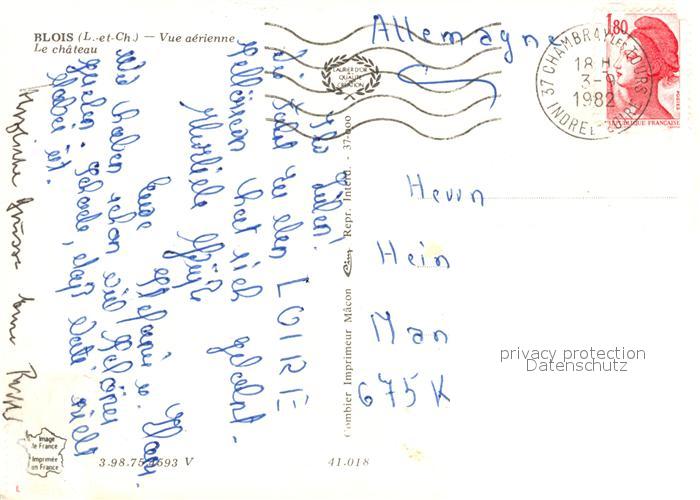 BLOIS (L.-et-Ch.) — Vue aérienne
Le château
Allemagne
LAURIER D'OR
QUALITÉ
CRÉATION
37 CHAMBRAY LES TOURS
18 H
3-9
1982
INDRE-ET-LOIRE
1,80
RÉPUBLIQUE FRANÇAISE
POSTES
Ihr Lieben!
Die Fahrt zu den LOIRE
hat sich gelohnt.
Herzliche Grüße
Eure
Wir haben schon viel Schönes
gesehen. Schade, daß Vati nicht
dabei ist.
Herzliche Grüsse
Combier Imprimeur Mâcon
Repr. Interd. - 37-000
Herrn
Hein
Man
675 K
privacy protection
Datenschutz
Image
de France
Imprimée
en France
3.98.75.4593 V
41.018